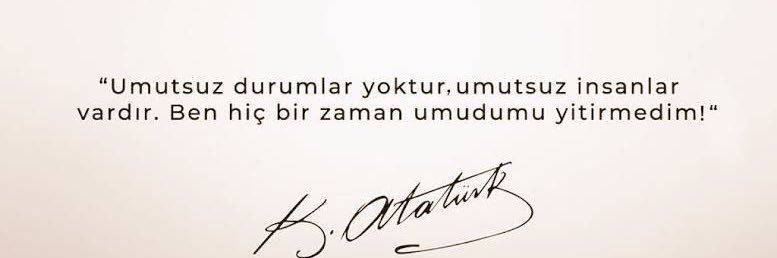 “Umutsuz durumlar yoktur,umutsuz insanlar
vardır. Ben hiç bir zaman umudumu yitirmedim!“
K. Atatürk